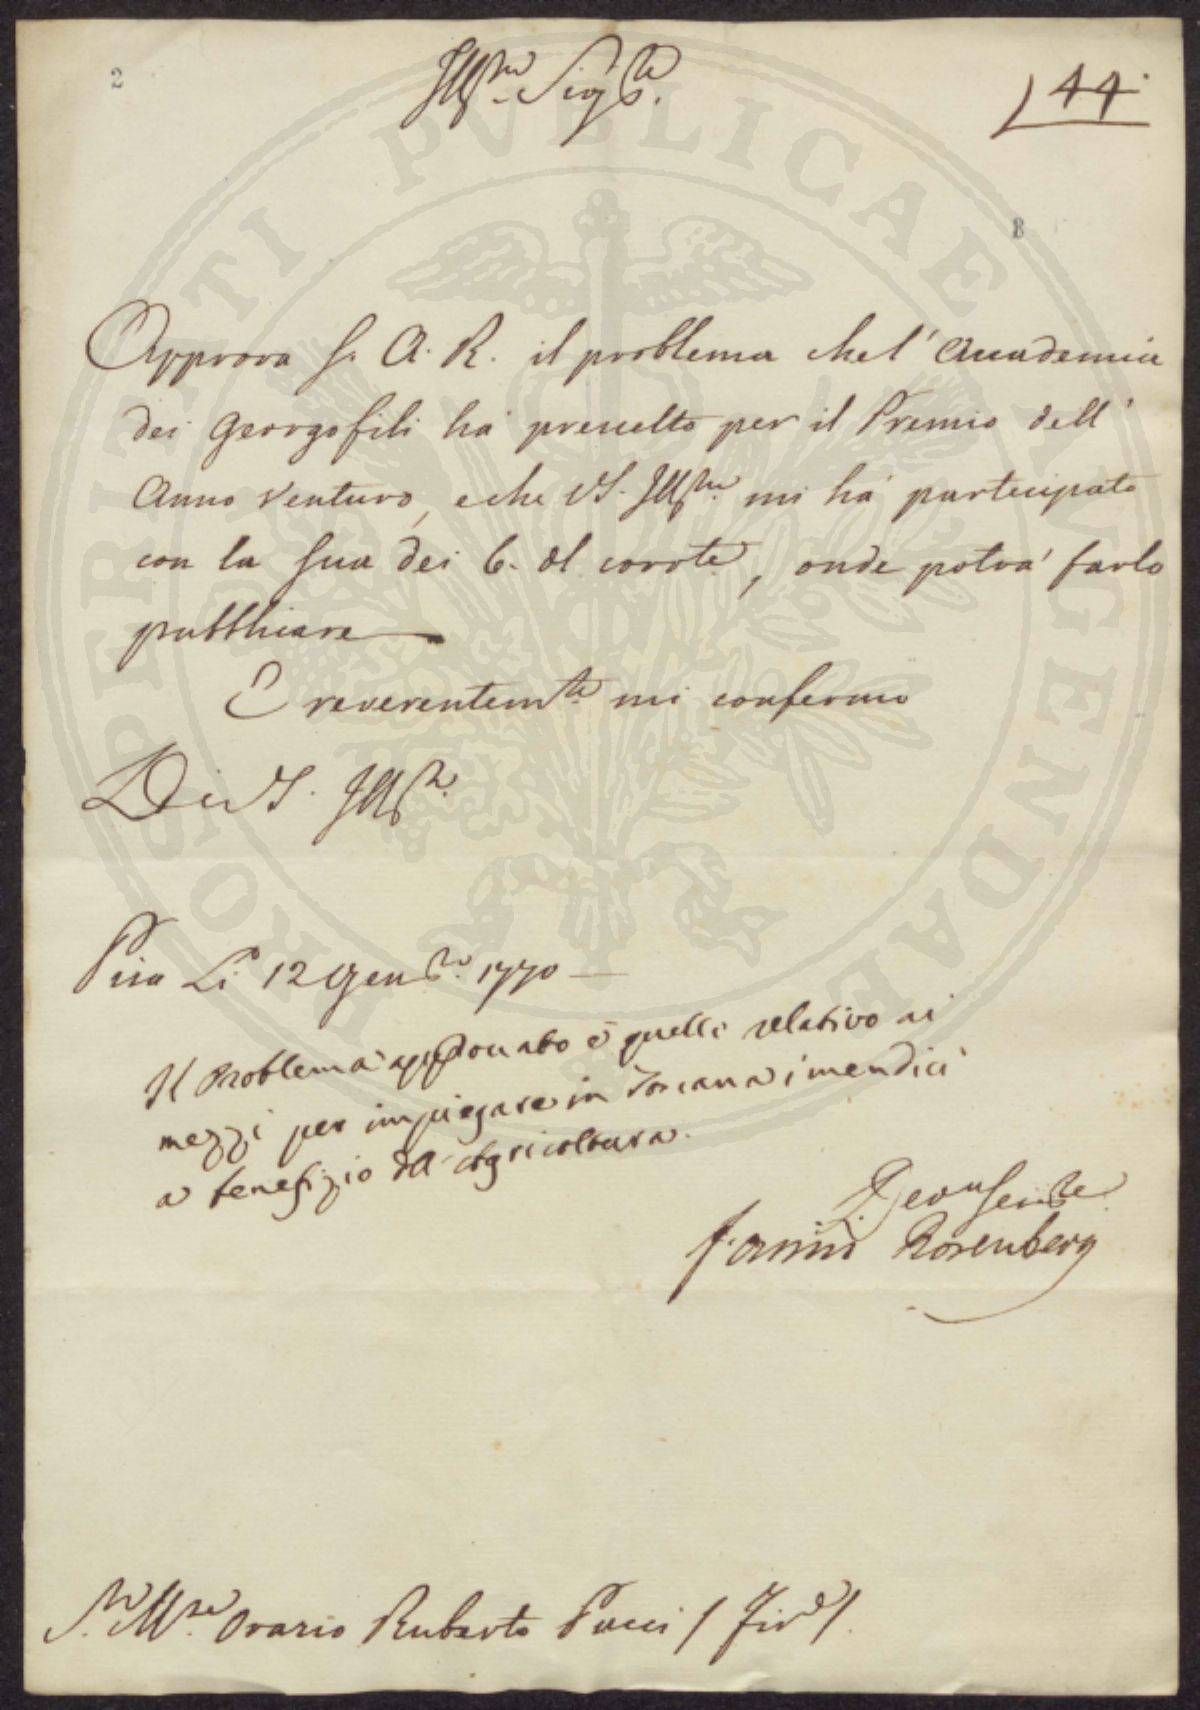 2
Ill.mo Sig.re
44
B
Approva S. A. R. il problema che l' Accademia
dei Georgofili ha prescelto per il Premio dell'
Anno venturo, e che VS. Ill.ma mi ha partecipato
con la sua dei 6. del corr.te, onde potrà farlo
pubblicare
E reverentem.te mi confermo
Di VS. Ill.ma
Pisa Li 12 Gen.ro 1770
Il Problema approvato è quello relativo ai
mezzi per impiegare in Toscana i mendici
a benefizio dell' Agricoltura.
Dev.mo Serv.re
Rosenberg
S.re M.se Orazio Ruberto Pucci / Fir.e /.
PROSPERITATI PVBLICAE AVGENDAE